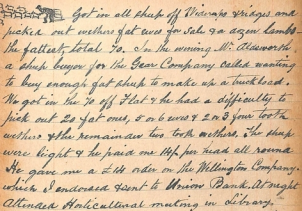 Got in all sheep off Viaraps & ridges and
picked out wethers fat ewes for sale & a dozen lambs
the fattest, total 70. In the evening Mr Aldworth
a sheep buyer for the Gear Company called wanting
to buy enough fat sheep to make up a truckload.
We got in the 70 off Flat & he had a difficulty to
pick out 20 fat ones, 5 or 6 ewes & 2 or 3 four tooth
wethers & the remainder two tooth wethers. The sheep
were light & he paid me 14/- per head all round
He gave me a £14 order on the Wellington Company
which I endorsed & sent to Union Bank. At night
attended Horticultural meeting in Library.